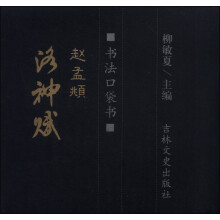 柳敏夏／主编
吉林文史出版社
■书法口袋书■
赵孟頫
洛神赋